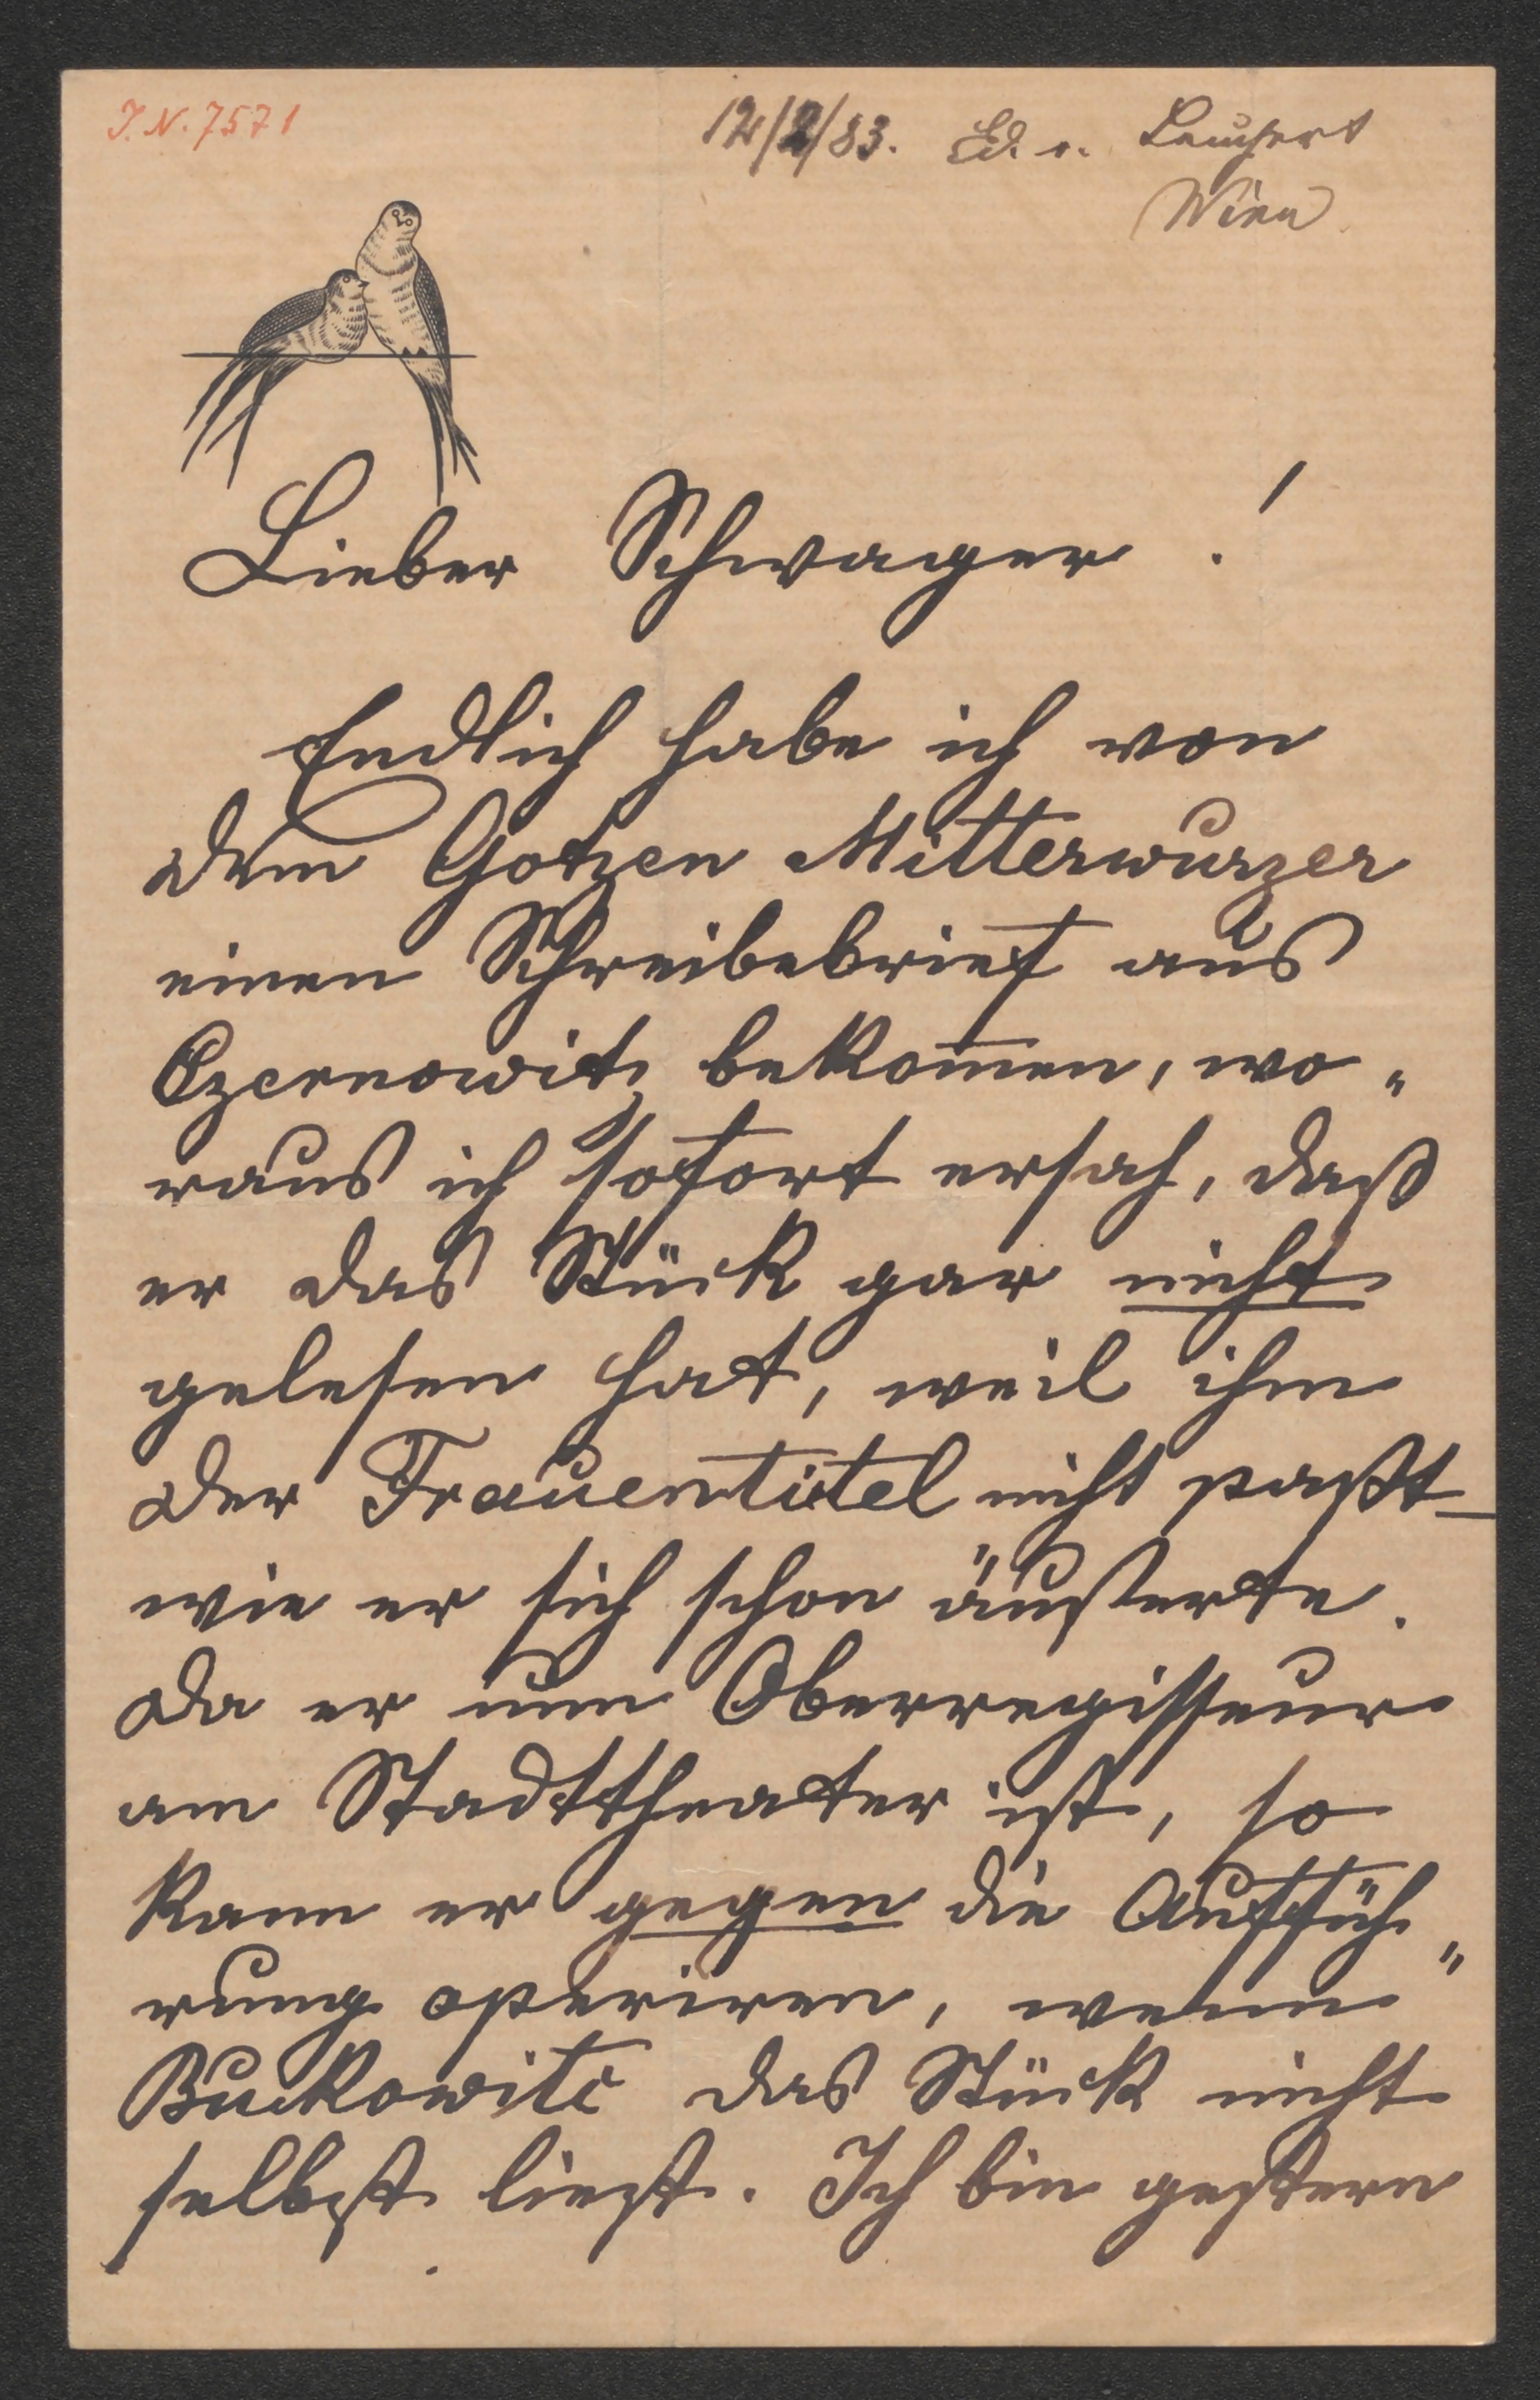 J.N. 7571
12/2/83. Ed. v. Bauhert
Wien
Lieber Schwager!
Endlich habe ich von
dem Gotzen Mitterwurzer
einen Schreibebrief aus
Czernowitz bekom̄en, wo„
raus ich sofort ersah, daß
er das Stück gar nicht
gelesen hat, weil ihm
der Frauentitel nicht paßt_
wie er sich schon äußerte.
Da er nun Oberregisseur
am Stadttheater ist, so
kann er gegen die Auffüh„
rung operiren, wenn
Buckowitc das Stück nicht
selbst liest. Ich bin gestern